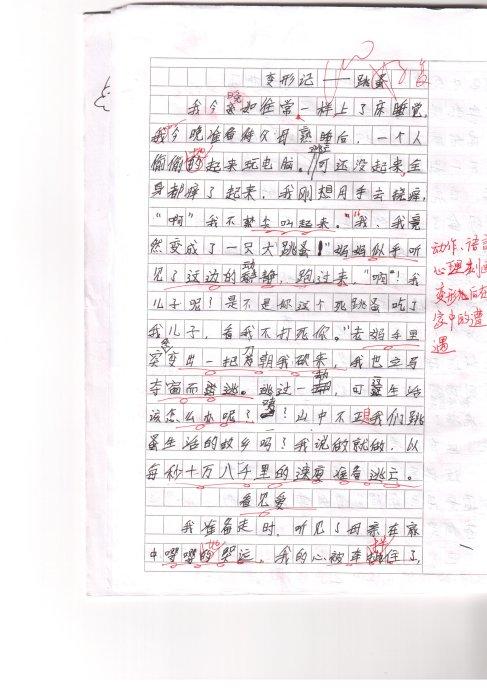 变形记——跳蚤
我今晚如往常一样上了床睡觉,
我今晚准备待父母熟睡后,一个人
偷偷地起来玩电脑。可还没起来全
身都痒了起来,我刚想用手去挠痒,
“啊”我不禁尖叫起来。“我、我竟
然变成了一只大跳蚤!”妈妈似乎听
见了这边的动静,跑过来,“啊!我
儿子呢?是不是你这个死跳蚤吃了
我儿子,看我不打死你。”老妈手里
突变出一把刀朝我砍来,我也立马
夺窗而逃。逃过一劫,可是生活
该怎么办呢?山中不正是我们跳
蚤生活的故乡吗?我说做就做,以
每秒十万八千里的速度准备逃亡。
看见爱
我准备走时,听见了母亲在麻
中嘤嘤地哭泣,我的心被牵绊住了,
动作、语言
心理刻画
变形后在
家中的遭
遇